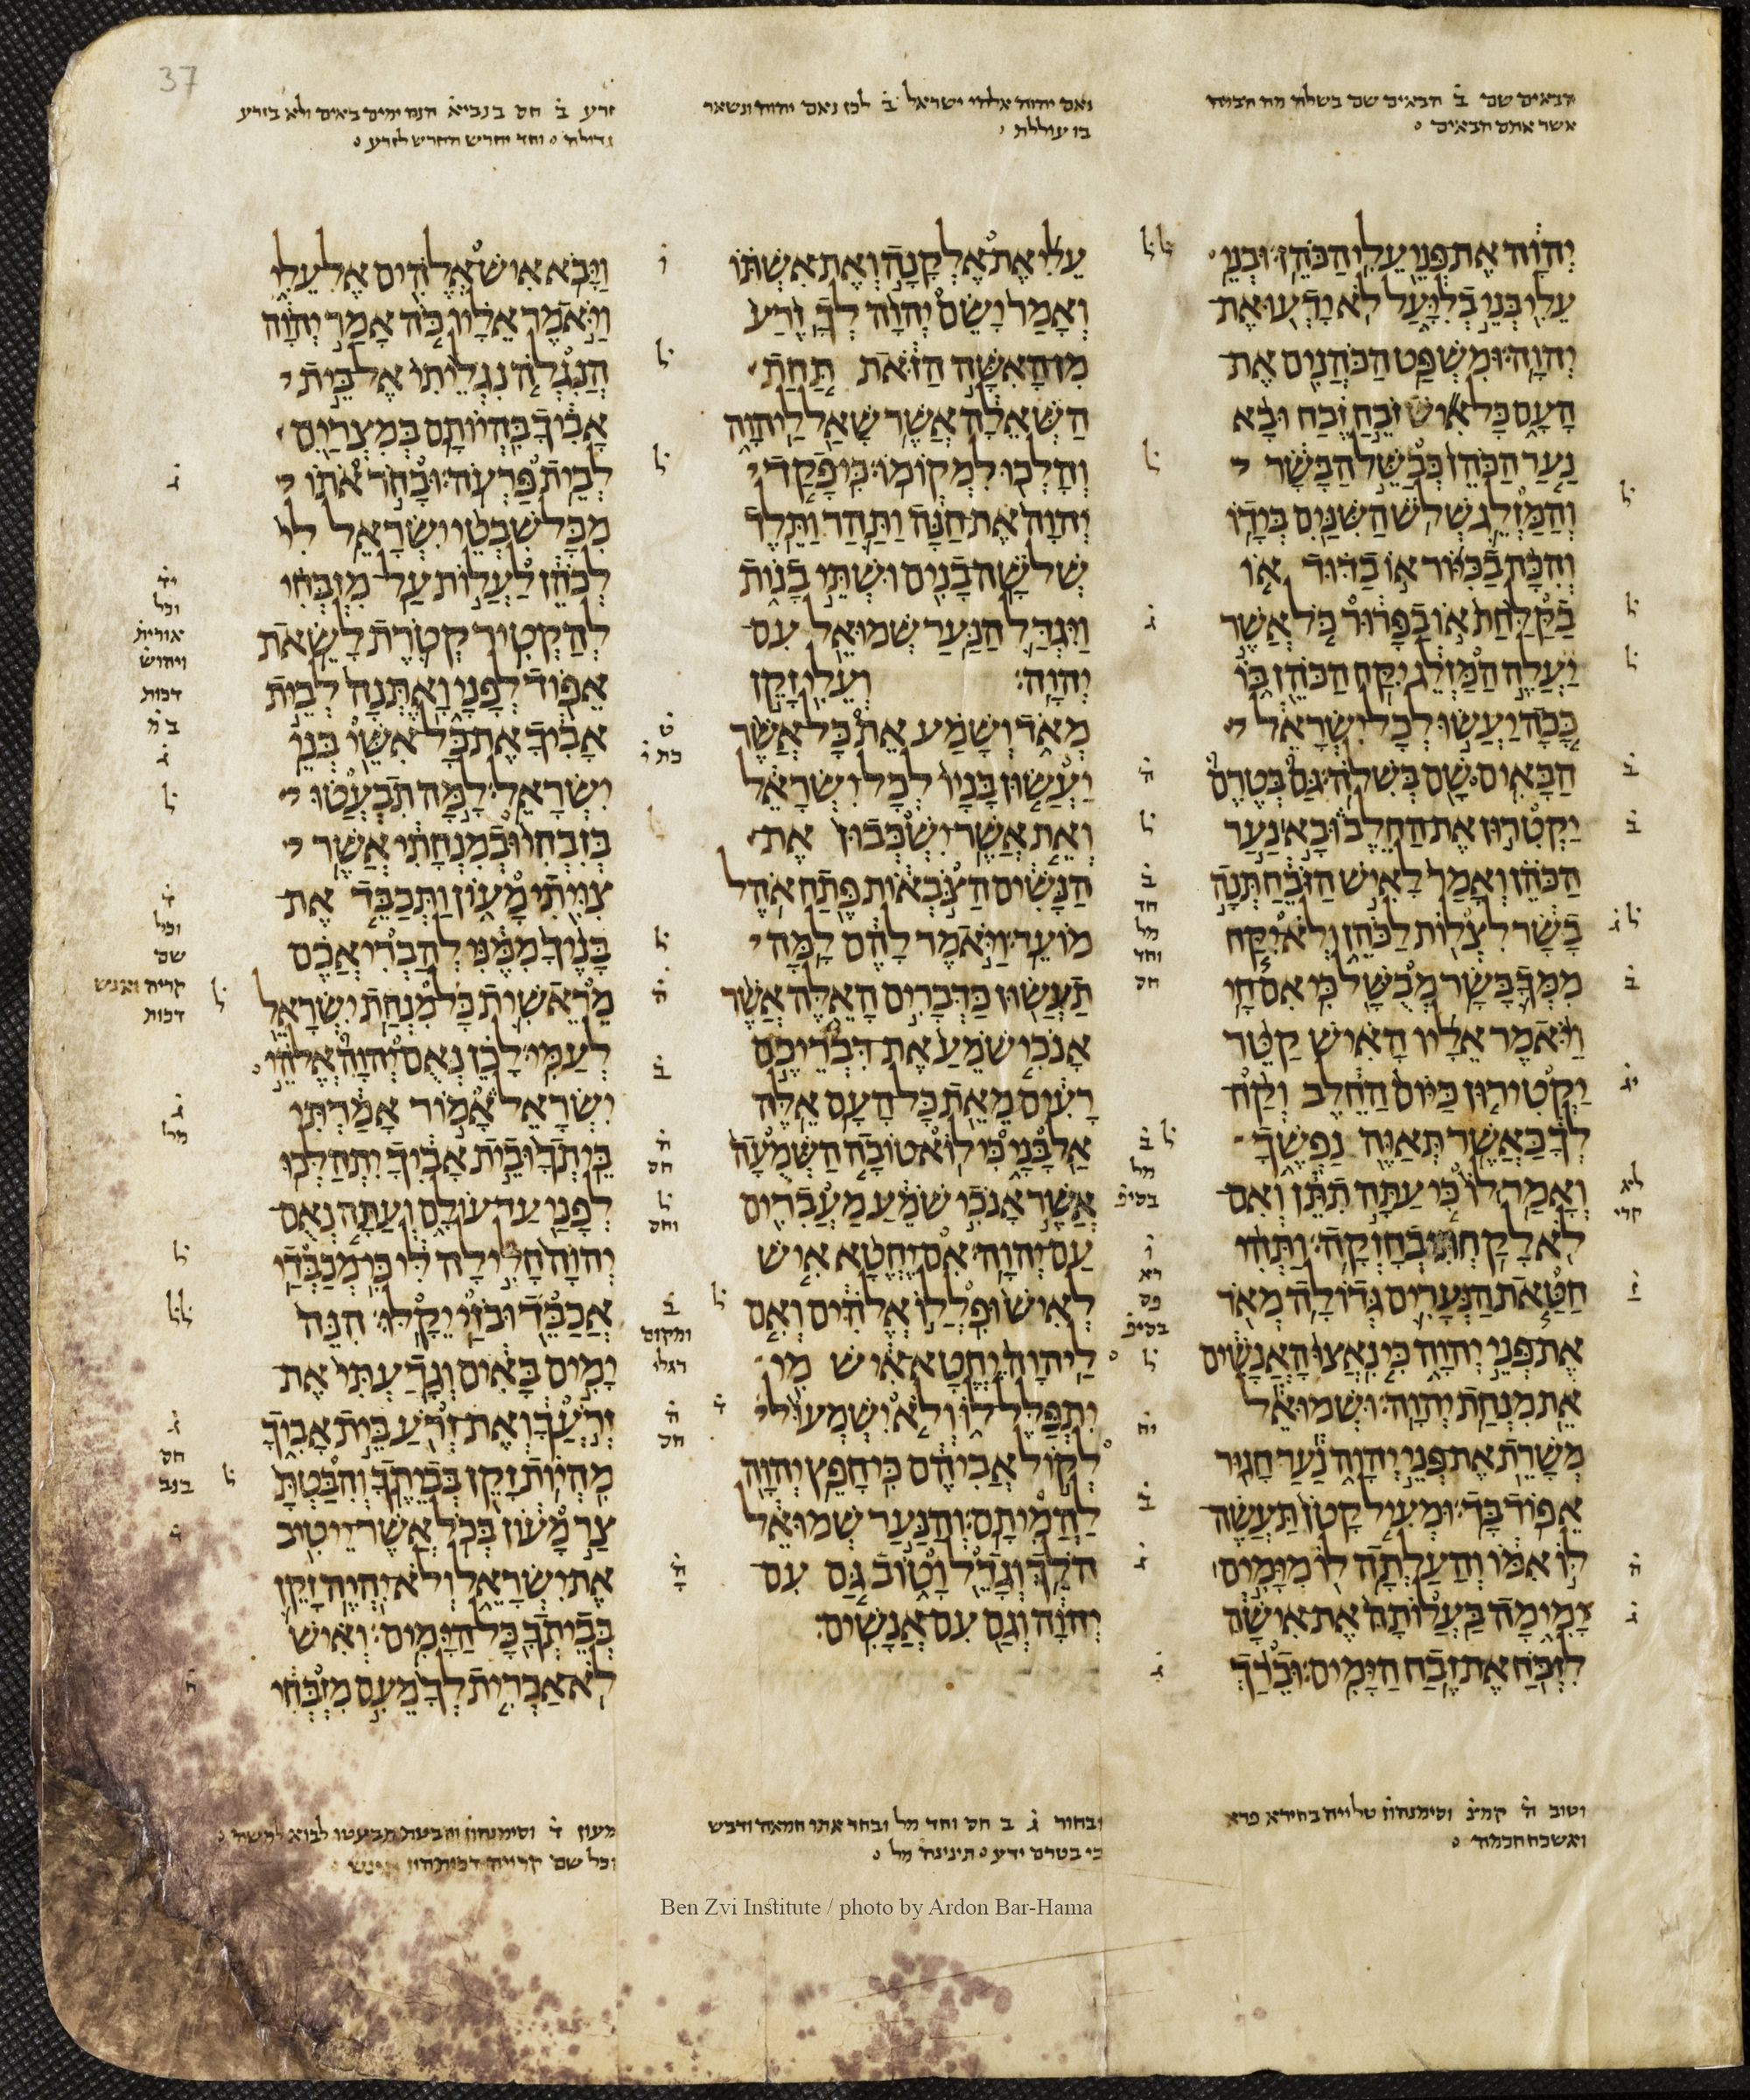 37
הבאים שם ב הבאים שם בשלה מה חכמה
אשר אתם הבאים
נאם יהוה אלהי ישראל ב לכן נאם יהוה ונשאר
בו עוללת
זרע ב חס בנביא הנה ימים באים ולא בזרע
גדולה וחד יחרש החרש לזרע
יהוה את פני עלי הכהן ובני
עלי בני בליעל לא ידעו את
יהוה ומשפט הכהנים את
העם כל איש זבח זבח ובא
נער הכהן כבשל הבשר
והמזלג שלש השנים בידו
והכה בכיור או בדוד או
בקלחת או בפרור כל אשר
יעלה המזלג יקח הכהן בו
ככה יעשו לכל ישראל
הבאים שם בשלה גם בטרם
יקטרון את החלב ובא נער
הכהן ואמר לאיש הזבח תנה
בשר לצלות לכהן ולא יקח
ממך בשר מבשל כי אם חי
ויאמר אליו האיש קטר
יקטירון כיום החלב וקח
לך כאשר תאוה נפשך
ואמר לו כי עתה תתן ואם
לא לקחתי בחזקה ותהי
חטאת הנערים גדולה מאד
את פני יהוה כי נאצו האנשים
את מנחת יהוה ושמואל
משרת את פני יהוה נער חגור
אפוד בד ומעיל קטן תעשה
לו אמו והעלתה לו מימים
ימימה בעלותה את אישה
לזבח את זבח הימים וברך
עלי את אלקנה ואת אשתו
ואמר ישם יהוה לך זרע
מן האשה הזאת תחת
השאלה אשר שאל ליהוה
והלכו למקומו כי פקד
יהוה את חנה ותהר ותלד
שלשה בנים ושתי בנות
ויגדל הנער שמואל עם
יהוה ועלי זקן
מאד ושמע את כל אשר
יעשון בניו לכל ישראל
ואת אשר ישכבון את
הנשים הצבאות פתח אהל
מועד ויאמר להם למה
תעשון כדברים האלה אשר
אנכי שמע את דבריכם
רעים מאת כל העם אלה
אל בני כי לוא טובה השמעה
אשר אנכי שמע מעברים
עם יהוה אם יחטא איש
לאיש ופללו אלהים ואם
ליהוה יחטא איש מי
יתפלל לו ולא ישמעו
לקול אביהם כי חפץ יהוה
להמיתם והנער שמואל
הלך וגדל וטוב גם עם
יהוה וגם עם אנשים
ויבא איש אלהים אל עלי
ויאמר אליו כה אמר יהוה
הנגלה נגליתי אל בית
אביך בהיותם במצרים
לבית פרעה ובחר אתו
מכל שבטי ישראל לי
לכהן לעלות על מזבחי
להקטיר קטרת לשאת
אפוד לפני ואתנה לבית
אביך את כל אשי בני
ישראל למה תבעטו
בזבחי ובמנחתי אשר
צויתי מעון ותכבד את
בניך ממני להבריאכם
מראשית כל מנחת ישראל
לעמי לכן נאם יהוה אלהי
ישראל אמור אמרתי
ביתך ובית אביך יתהלכו
לפני עד עולם ועתה נאם
יהוה חלילה לי כי מכבדי
אכבד ובזי יקלו הנה
ימים באים וגדעתי את
זרעך ואת זרע בית אביך
מהיות זקן בביתך והבטת
צר מעון בכל אשר ייטיב
את ישראל ולא יהיה זקן
בביתך כל הימים ואיש
לא אכרית לך מעם מזבחי
וטוב ה קמצ וסימנהון טלויה בחירא פרא
ואשכח חכמה
ובחור ג ב חס וחד מל ובחר אתו חמאה ודבש
כי בטרם ידע תינינה מל
מעון ד וסימנהון
Ben Zvi Institute / photo by Ardon Bar-Hama